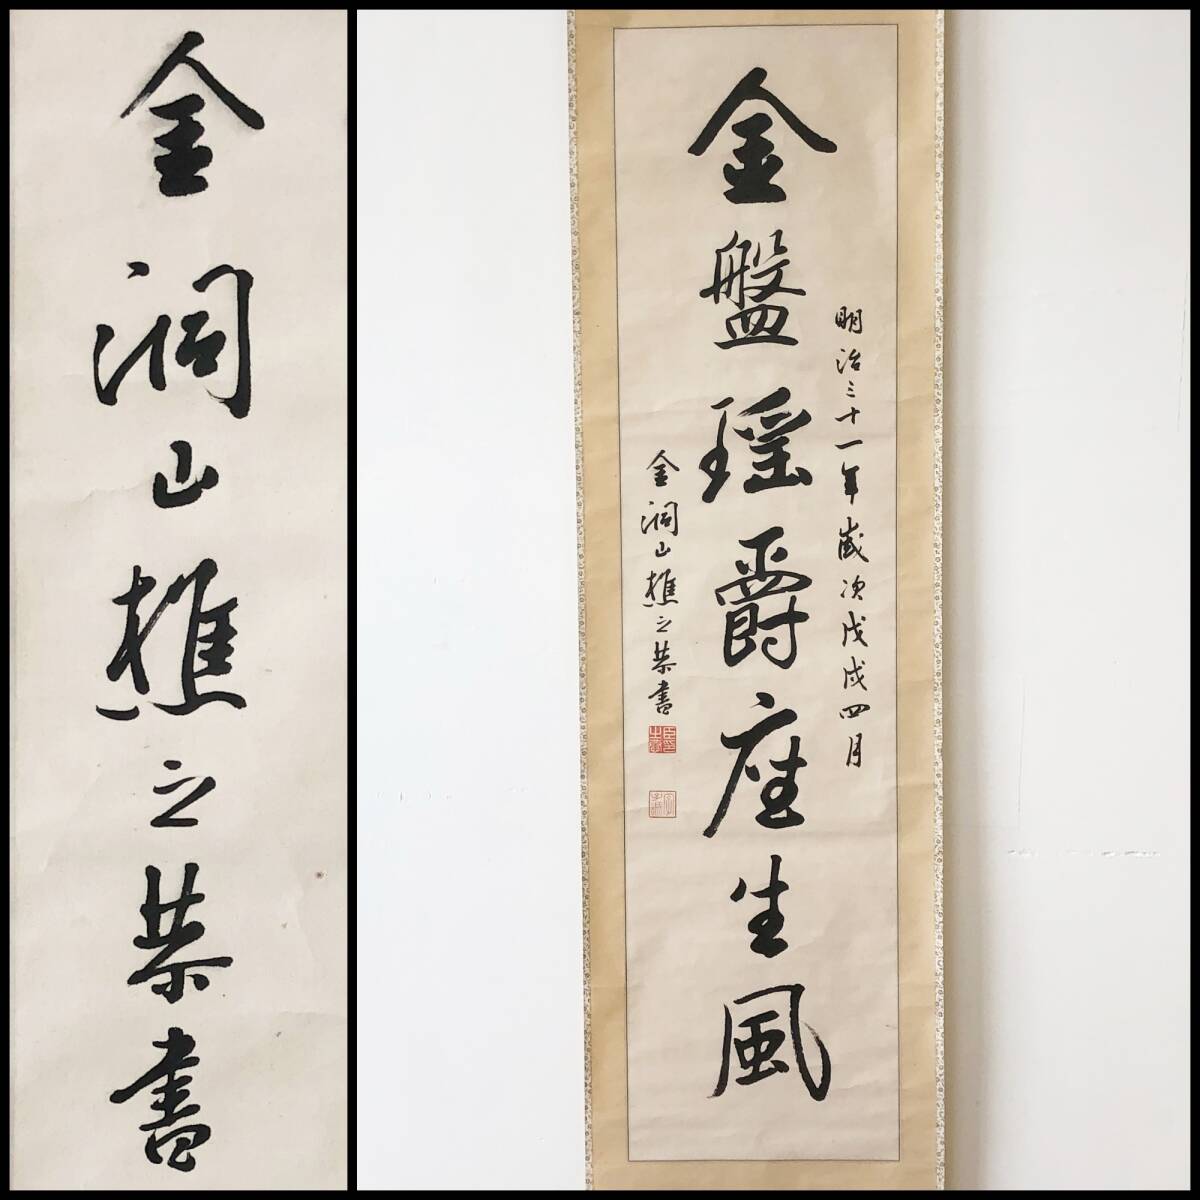 金洞山樵之恭書
明治三十一年歳次戊戌四月
金盤瑶爵座生風
金洞山樵之恭書